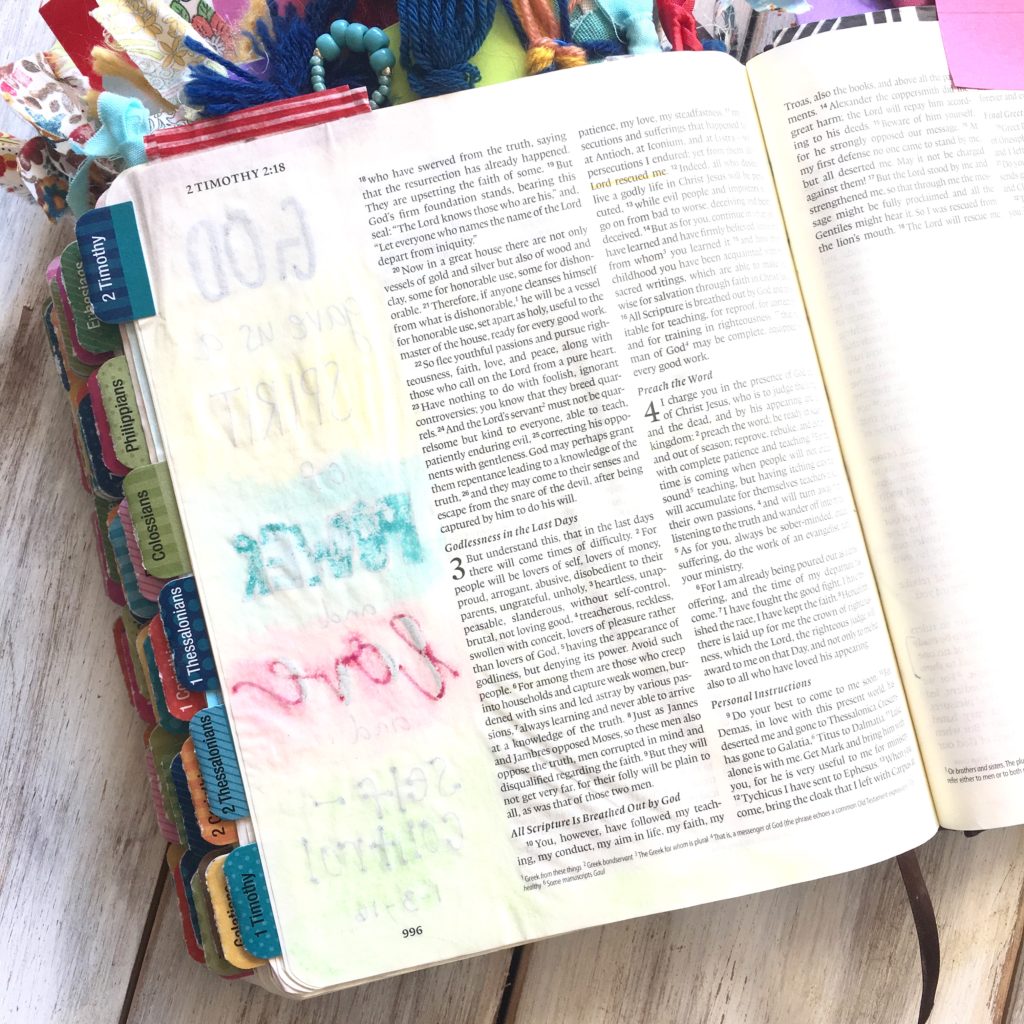 2 TIMOTHY 2:18
18 who have swerved from the truth, saying
that the resurrection has already happened.
They are upsetting the faith of some. 19 But
God's firm foundation stands, bearing this
seal: "The Lord knows those who are his," and,
"Let everyone who names the name of the Lord
depart from iniquity."
20 Now in a great house there are not only
vessels of gold and silver but also of wood and
clay, some for honorable use, some for dishon-
orable. 21 Therefore, if anyone cleanses himself
from what is dishonorable,1 he will be a vessel
for honorable use, set apart as holy, useful to the
master of the house, ready for every good work.
22 So flee youthful passions and pursue righ-
teousness, faith, love, and peace, along with
those who call on the Lord from a pure heart.
23 Have nothing to do with foolish, ignorant
controversies; you know that they breed quar-
rels. 24 And the Lord's servant2 must not be quar-
relsome but kind to everyone, able to teach,
patiently enduring evil, 25 correcting his oppo-
nents with gentleness. God may perhaps grant
them repentance leading to a knowledge of the
truth, 26 and they may come to their senses and
escape from the snare of the devil, after being
captured by him to do his will.
Godlessness in the Last Days
3 But understand this, that in the last days
there will come times of difficulty. 2 For
people will be lovers of self, lovers of money,
proud, arrogant, abusive, disobedient to their
parents, ungrateful, unholy, 3 heartless, unap-
peasable, slanderous, without self-control,
brutal, not loving good, 4 treacherous, reckless,
swollen with conceit, lovers of pleasure rather
than lovers of God, 5 having the appearance of
godliness, but denying its power. Avoid such
people. 6 For among them are those who creep
into households and capture weak women, bur-
dened with sins and led astray by various pas-
sions, 7 always learning and never able to arrive
at a knowledge of the truth. 8 Just as Jannes
and Jambres opposed Moses, so these men also
oppose the truth, men corrupted in mind and
disqualified regarding the faith. 9 But they will
not get very far, for their folly will be plain to
all, as was that of those two men.
All Scripture Is Breathed Out by God
10 You, however, have followed my teach-
ing, my conduct, my aim in life, my faith, my
patience, my love, my steadfastness,
secutions and sufferings that happened
at Antioch, at Iconium, and at
persecutions I endured; yet from them
Lord rescued me. 12 Indeed, all who
live a godly life in Christ Jesus will be
cuted, 13 while evil people and
go on from bad to worse, deceiving and
deceived. 14 But as for you, continue in
have learned and have firmly believed
from whom3 you learned it 15 and
childhood you have been acquainted
sacred writings, which are able to make
wise for salvation through faith in Christ
16 All Scripture is breathed out by God and
itable for teaching, for reproof, for
and for training in righteousness,
man of God4 may be complete,
every good work.
Preach the Word
4 I charge you in the presence of God
of Christ Jesus, who is to judge the
and the dead, and by his appearing
kingdom: 2 preach the word; be ready
and out of season; reprove, rebuke, and
with complete patience and teaching.
time is coming when people will not
sound5 teaching, but having itching
will accumulate for themselves teachers
their own passions, 4 and will turn
listening to the truth and wander off into
5 As for you, always be sober-minded,
suffering, do the work of an evangelist,
your ministry.
6 For I am already being poured out
offering, and the time of my departure
come. 7 I have fought the good fight, I have
ished the race, I have kept the faith. 8
there is laid up for me the crown of
ness, which the Lord, the righteous judge,
award to me on that Day, and not only to me
also to all who have loved his appearing.
Personal Instructions
9 Do your best to come to me soon.
Demas, in love with this present world,
deserted me and gone to Thessalonica.
has gone to Galatia,6 Titus to Dalmatia.
alone is with me. Get Mark and bring him
you, for he is very useful to me for
12 Tychicus I have sent to Ephesus.
come, bring the cloak that I left with Carpus
1 Greek from these things 2 Greek bondservant 3 The Greek for whom is plural 4 That is, a messenger of God (the phrase echoes a common Old Testament expression)
healthy 6 Some manuscripts Gaul
996
Troas, also the books, and above all the
ments. 14 Alexander the coppersmith
great harm; the Lord will repay him accord-
ing to his deeds. 15 Beware of him yourself,
for he strongly opposed our message.
my first defense no one came to stand by
but all deserted me. May it not be charged
against them! 17 But the Lord stood by me and
strengthened me, so that through me the mes-
sage might be fully proclaimed and all the
Gentiles might hear it. So I was rescued from
the lion's mouth. 18 The Lord will rescue me
Or brothers and sisters. The
refer either to men or to both
GOD
gave us a
SPIRIT
of
POWER
and
Love
and
Self-
Control
1-3-18
2 Timothy
Ephesians
Philippians
Colossians
1 Thessalonians
2 Thessalonians
Galatians
1 Timothy